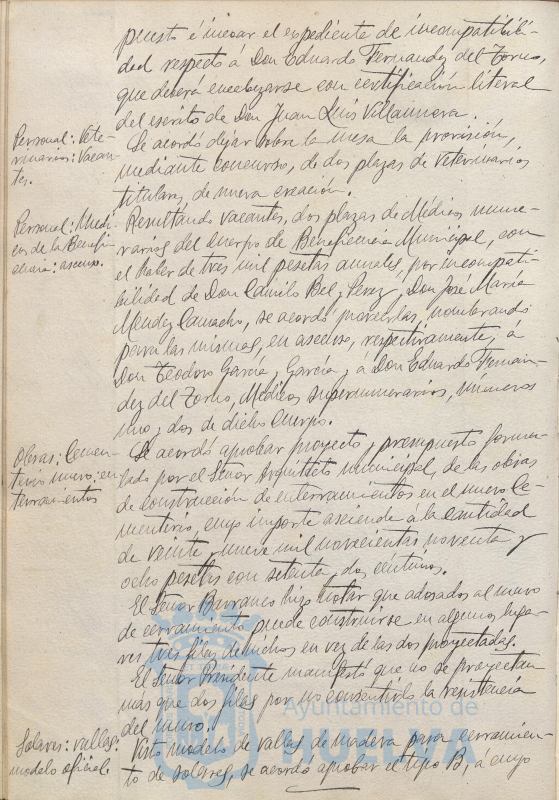 puesto é incoar el expediente de incompatibili-
dad respecto á Don Eduardo Fernandez del Torno,
que deberá encabezarse con certificación literal
del escrito de Don Juan Luis Villanueva.
Personal: Vete-
rinarios: Vacan-
tes.
Se acordó dejar sobre la mesa la provisión,
mediante concurso, de dos plazas de Veterinarios
titulares, de nueva creación.
Personal: Médi-
cos de la Benefi-
cencia: ascenso.
Resultando vacantes, dos plazas de Médicos nume-
rarios del Cuerpo de Beneficencia Municipal, con
el haber de tres mil pesetas anuales, por incompati-
bilidad de Don Camilo Bel y Perez y Don José María
Mendez Camacho, se acordó proveerlas, nombrando
para las mismas, en ascenso, respectivamente, á
Don Teodoro García y García y a Don Eduardo Fernan-
dez del Torno, Médicos supernumerarios, números
uno y dos de dicho Cuerpo.
Obras: Cemen-
terio nuevo: en-
terramientos
Se acordó aprobar proyecto y presupuesto formu-
lado por el Señor Arquitecto municipal, de las obras
de construcción de enterramientos en el nuevo Ce-
menterio, cuyo importe asciende á la cantidad
de veinte y nueve mil novecientas noventa y
ocho pesetas con setenta y dos céntimos.
El Señor Barranco hizo notar que adosados al muro
de cerramiento puede construirse en algunos luga-
res tres filas de nichos en vez de las dos proyectadas.
El Señor Presidente manifestó que no se proyectan
mas que dos filas por no consentirlo la resistencia
del muro.
Solares: vallas:
modelo oficial.
Visto modelo de vallas de madera para cerramien-
to de solares, se acordó aprobar el tipo B, á cuyo
Ayuntamiento de
HUELVA